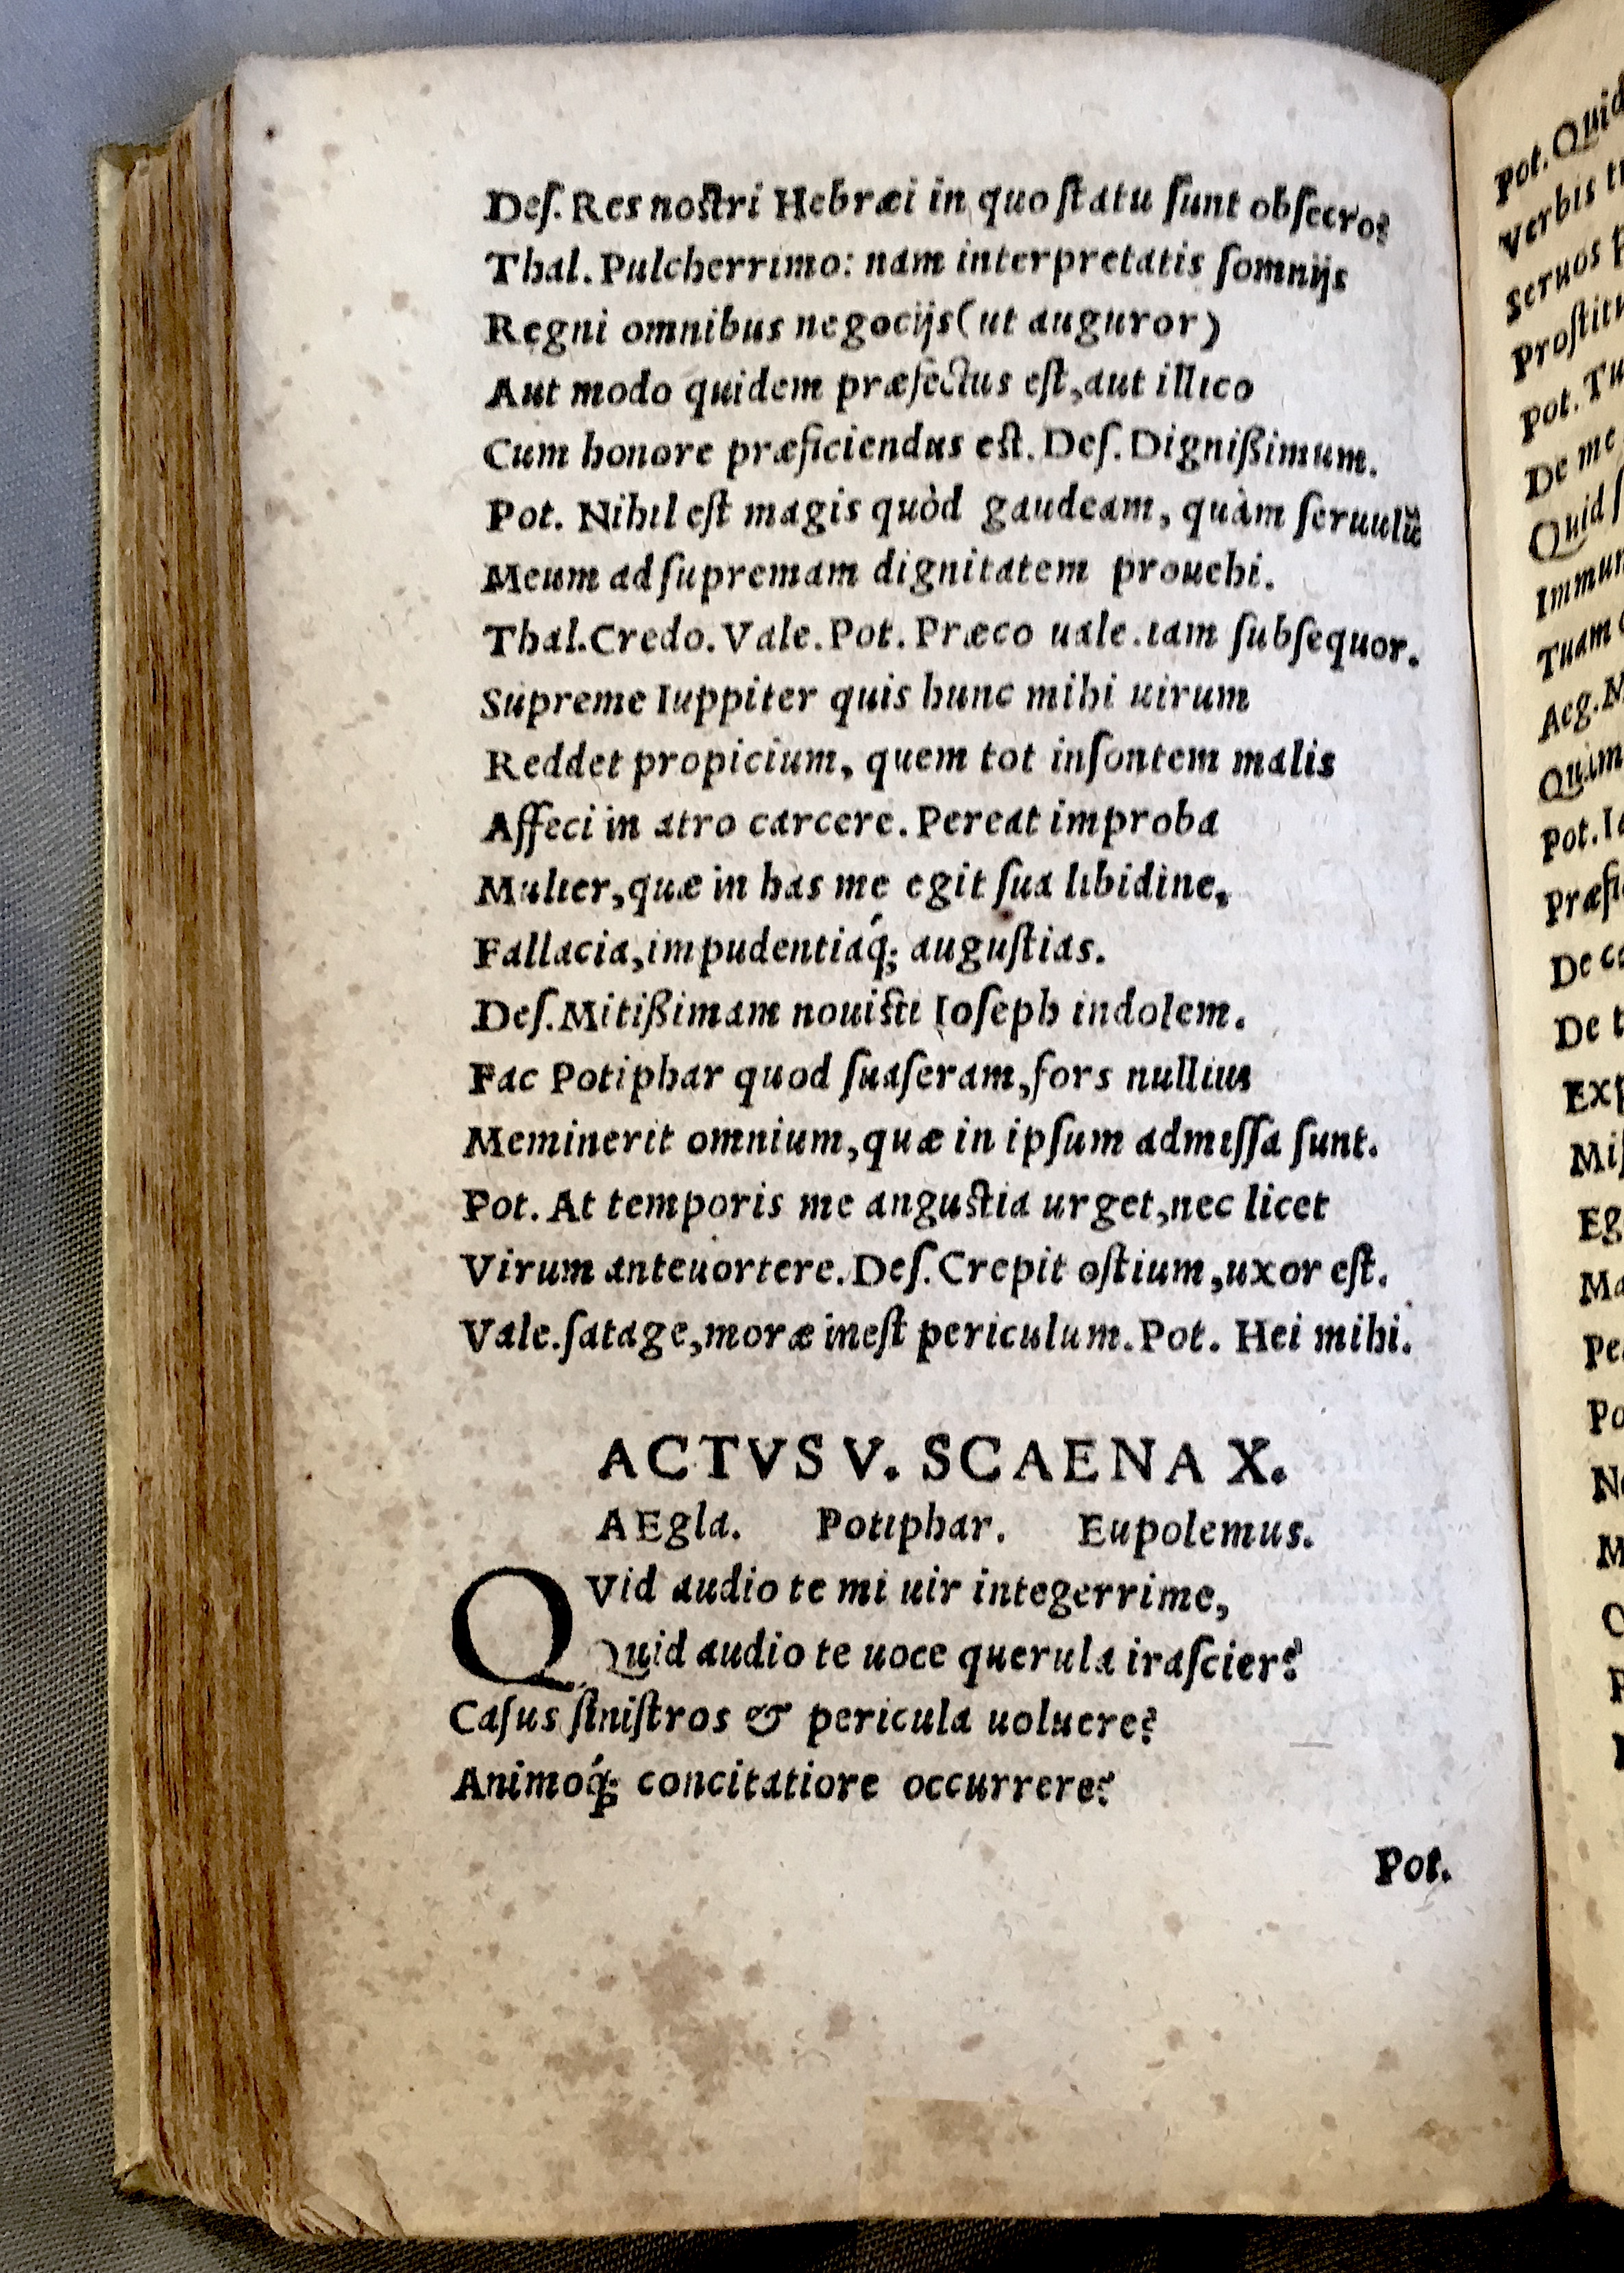 Deſ. Res noſtri Hebræi in quo ſtatu ſunt obſecro?
Thal. Pulcherrimo: nam interpretatis ſomnijs
Regni omnibus negocijs (ut auguror)
Aut modo quidem præfectus eſt, aut illico
Cum honore præficiendus eſt. Deſ. Digniſsimum.
Pot. Nihil eſt magis quòd gaudeam, quàm ſeruulũ
Meum ad ſupremam dignitatem prouehi.
Thal. Credo. Vale. Pot. Præco uale. iam ſubſequor.
Supreme Iuppiter quis hunc mihi uirum
Reddet propicium, quem tot inſontem malis
Affeci in atro carcere. Pereat improba
Mulier, quæ in has me egit ſua libidine,
Fallacia, impudentiaq́; auguſtias.
Deſ. Mitiſsimam nouiſti Ioſeph indolem.
Fac Potiphar quod ſuaſeram, fors nullius
Meminerit omnium, quæ in ipſum admiſſa ſunt.
Pot. At temporis me anguſtia urget, nec licet
Virum anteuortere. Deſ. Crepit oſtium, uxor eſt.
Vale. ſatage, moræ ineſt periculum. Pot. Hei mihi.
ACTVS V. SCAENA X.
AEgla. Potiphar. Eupolemus.
QVid audio te mi uir integerrime,
Quid audio te uoce querula iraſcier?
Caſus ſiniſtros & pericula uoluere?
Animoq́; concitatiore occurrere?
Pot.
Pot. Quid
Verbis
Seruos
Pot. Tu
De me
Quid
Tuam
Aeg.
Pot.
De
De